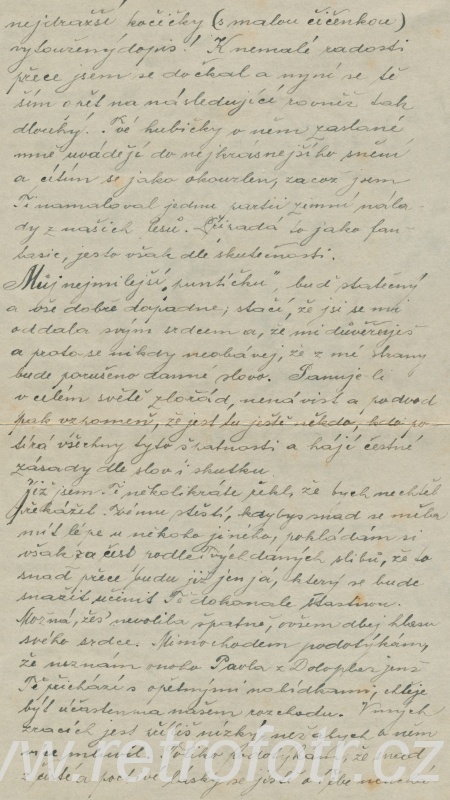 nejdražší kočičky (s malou čičenkou)
vytoužený dopis! K nemalé radosti
přece jsem se dočkal a nyní se tě
ším opět na následující rovněž tak
dlouhý. Tvé hubičky v něm zaslané
mně uvádějí do nejkrásnějšího snění
a cítím se jako okouzlen, začož jsem
Ti namaloval jednu partii zimní nála-
dy z našich lesů. Vypadá to jako fan-
tasie, jest to však dle skutečnosti.
Můj nejmilejší „puntíčku“, buď statečný
a vše dobře dopadne; stačí, že jsi se mi
oddala svým srdcem a, že mi důvěřuješ
a proto se nikdy neobávej, že z mé strany
bude porušeno danné slovo. Panuje-li
v celém světě zlořád, nenávist a podvod
pak vzpomeň, že jest tu ještě někdo, kdo po
tírá všechny tyto špatnosti a hájí čestné
zásady dle slov i skutku.
Již jsem Ti několikráte řekl, že bych nechtěl
překážet Tvému štěstí, kdybys snad se měla
mít lépe u někoho jiného, pokládám si
však za čest podle Tvých daných slibů, že to
snad přece budu již jen já, který se bude
snažit učinit Tě dokonale šťastnou.
Možná, žes' nevolila špatně, ovšem dbej hlasu
svého srdce. Mimochodem podotýkám,
že neznám onoho Pavla z Dolopler jenž
Tě přichází s opětnými nabídkami, chtěje
být účasten na našem rozchodu. V mých
zracích jest příliš nízký, než abych o něm
více mluvil. Toliko podotýkám, že snad
se jistě o Tebe neuchá
www.retrofotr.cz